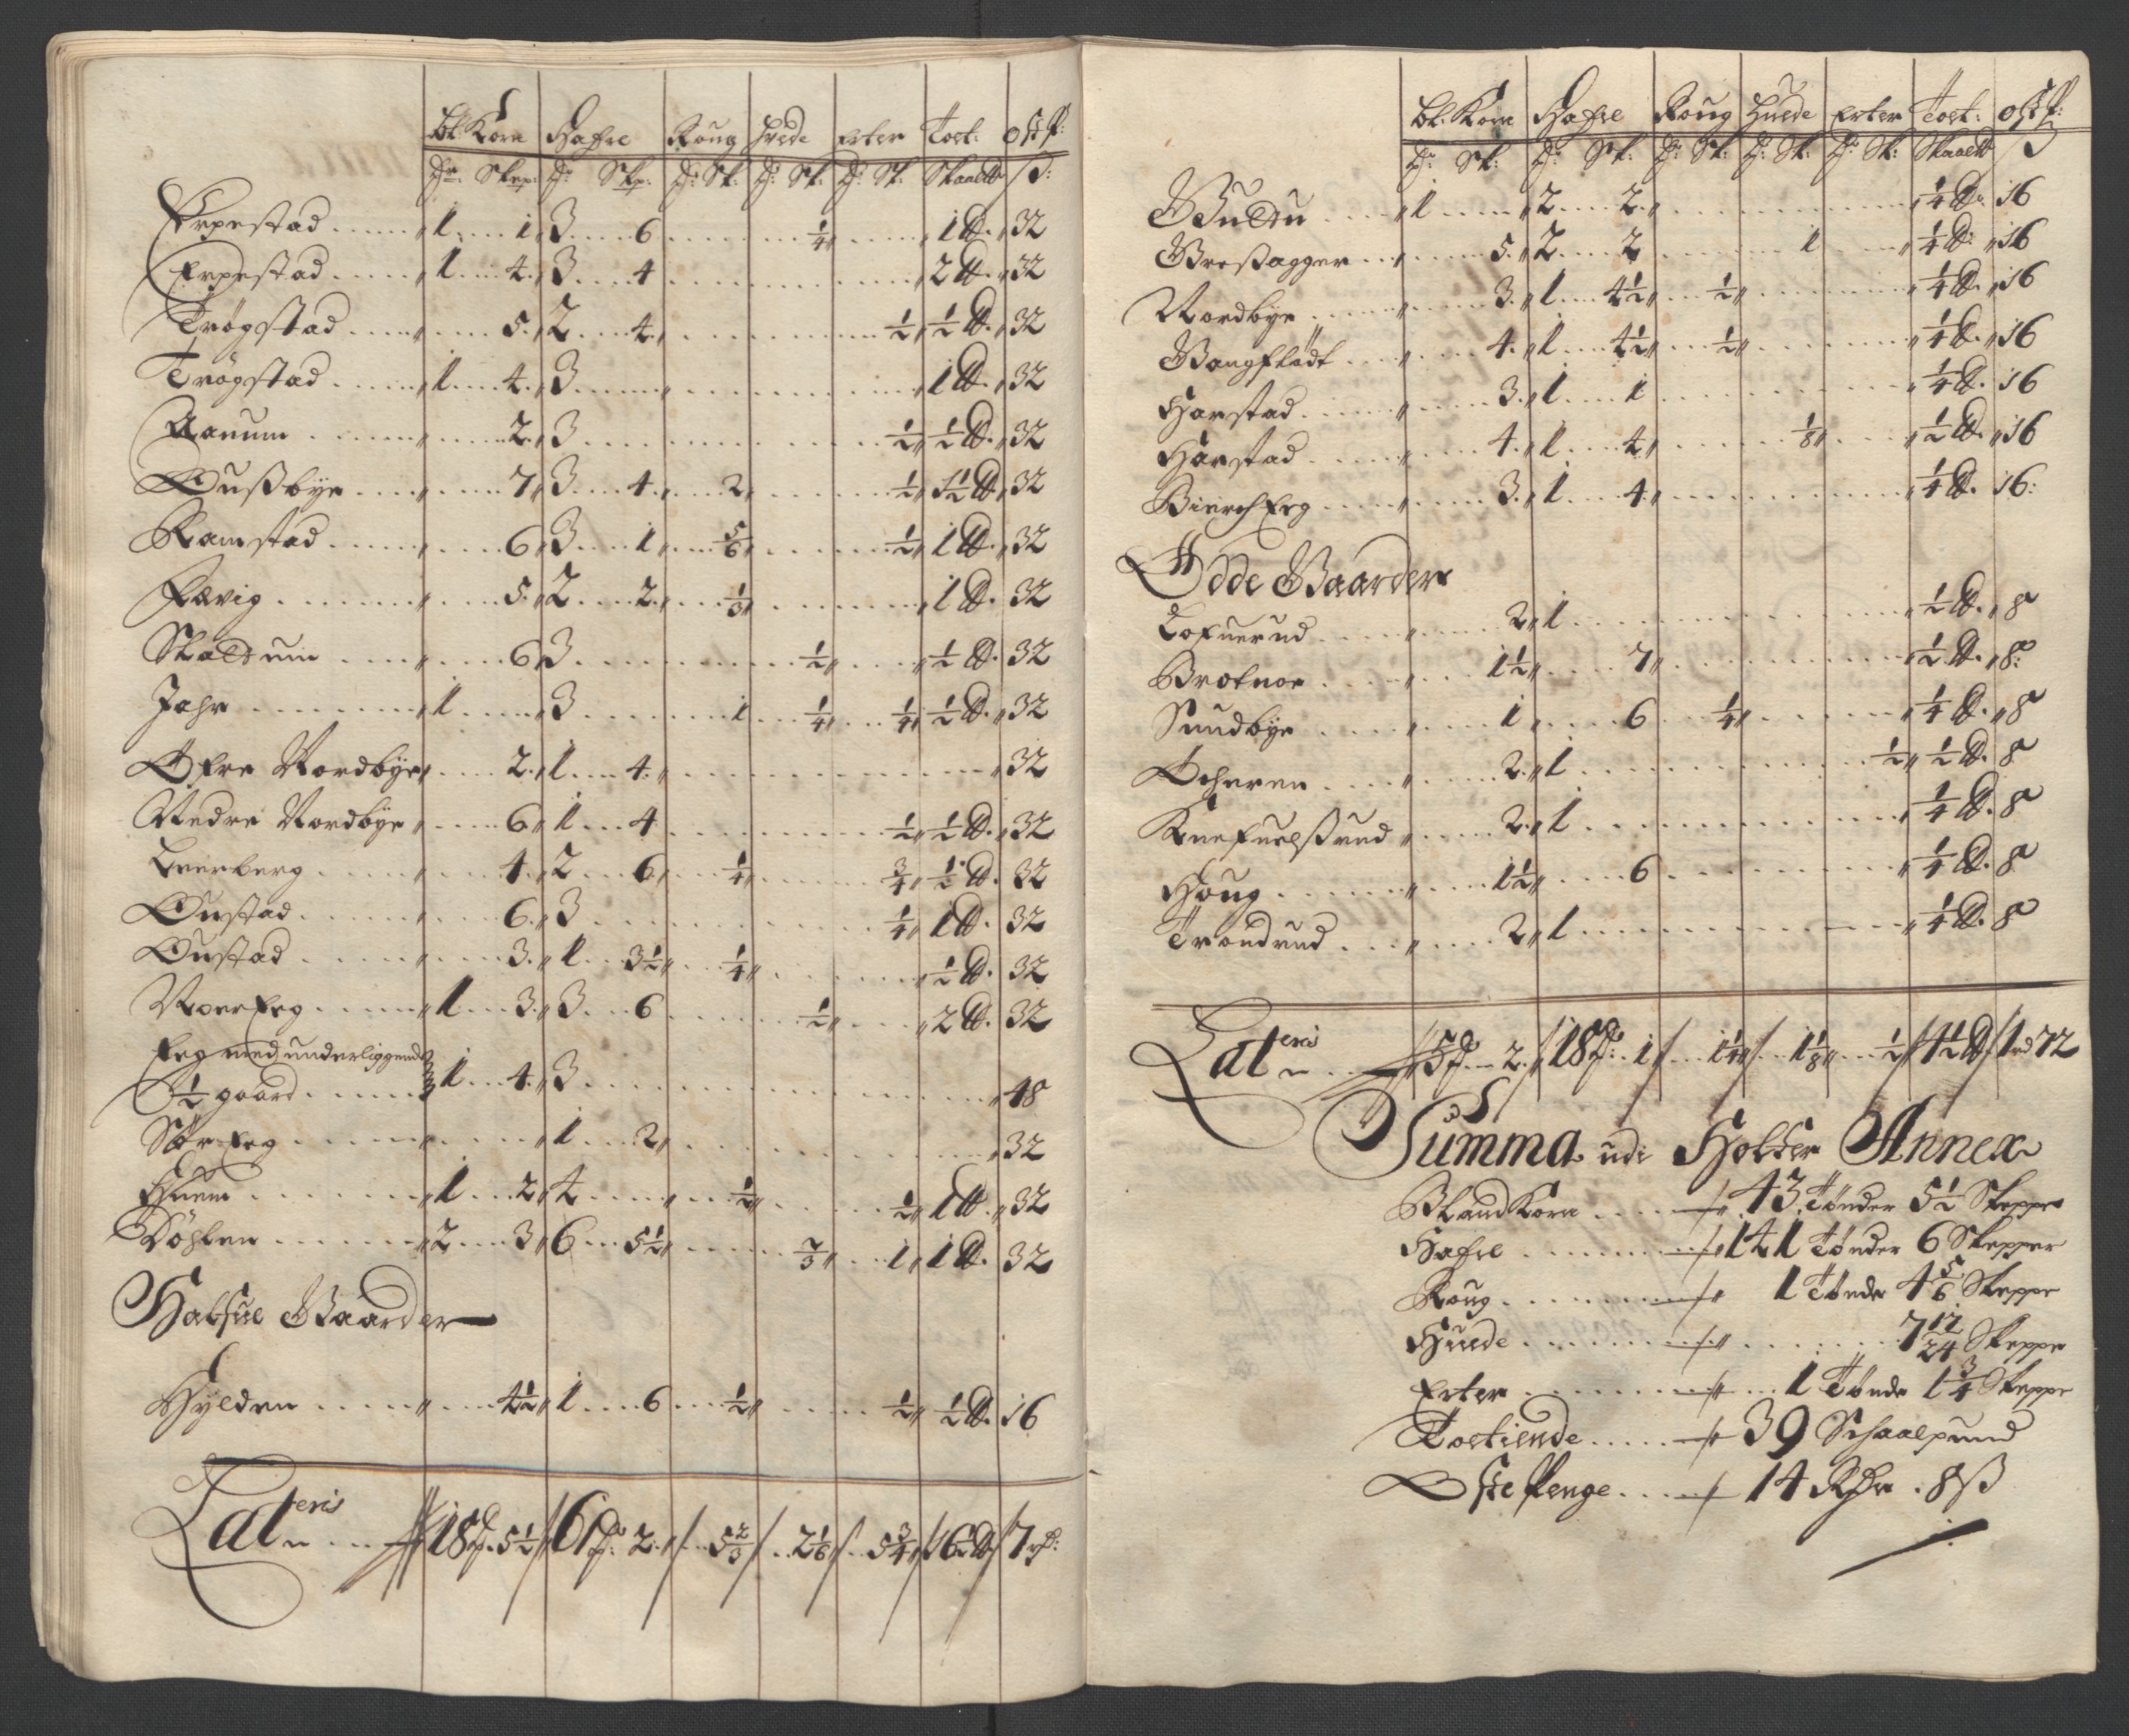 Bl: Korn Hafre Roug Hvede Erter Tost: Ost P:
Tr: Skep: Tr: Skp: Tr: Sk: Tr: Sk: Tr: Sk: Skaal℔ ß:
Erpestad ..... 1 .. 1 〃 3 ... 6 ....... 1/4 〃 ..... 1 ℔. 〃 32
Erpestad ..... 1 ... 4. 〃 3 ... 4 ............ 2 ℔. 〃 32
Trögstad ..... 〃 ..... 5. 〃 2 ... 4 ............ 1/2 〃 1/2 ℔. 〃 32
Trögstad ..... 〃 1 ... 4. 〃 3 .......... 1 ℔. 〃 32
Aanum ..... 〃 ..... 2. 〃 3 .......... 1/2 〃 1/2 ℔. 〃 32
Ousbye ..... 〃 ..... 7 〃 3 ... 4 〃 ... 2 〃 ..... 1/2 〃 1 1/2 ℔. 〃 32
Ramstad ..... 〃 ..... 6 〃 3 ... 1 〃 ... 5/6 〃 ..... 1/2 〃 1 ℔. 〃 32
Fævig ..... 〃 ..... 5. 〃 2 ... 2 〃 ... 1/3 〃 ....... 1 ℔. 32
Skaldum ..... 〃 ..... 6 〃 3 .......... 1/2 〃 ..... 〃 1/2 ℔. 32
Jahr ..... 〃 1 ..... 〃 3 ....... 1 ... 1/4 〃 ... 1/4 〃 1/2 ℔. 〃 32
Øfre Nordbye 〃 .... 2. 〃 1 ... 4. 〃 .......... 〃 32
Nedre Nordbye 〃 .... 6 〃 1 ... 4 .......... 1/2 〃 1/2 ℔. 〃 32
Leerberg ..... 〃 ..... 4. 〃 2 ... 6 〃 ... 1/4 〃 ..... 3/4 〃 1/2 ℔. 32
Oustad ..... 〃 ..... 6. 〃 3 .......... 1/4 〃 1 ℔. 32
Oustad ..... 〃 ..... 3. 〃 1 ... 3 1/2 〃 ... 1/4 〃 ....... 1/2 ℔. 32
Eeg ..... 〃 1 ... 3. 〃 3 ... 6 ....... 1/2 〃 ..... 2 ℔. 32
Eeg med underliggende
1/2 gaard ..... 1 ... 4. 〃 3 .......... 〃 48
Sør Eeg ..... 〃 ..... 1 ... 2 〃 .......... 〃 32
Huem ..... 〃 1 ... 2 〃 4 ..... 〃 ... 1/2 〃 ..... 1/2 〃 1 ℔. 〃 32
Döhlen ..... 〃 2 ... 3 〃 6 ... 5 1/2 〃 ..... 2/3 〃 ... 1 〃 1 ℔. 32
Halfue Gaarder
Hylden ..... 〃 ... 4 1/2 〃 1 ... 6 ... 1/2 〃 ..... 1/2 〃 1/2 ℔. 16
Lateris ... 18 Tr. 5 1/2 / 61 Tr: 2 〃 / .. 5 2/3 / .. 2 1/6 〃 / .. 5 3/4 〃 / 16 1/2 ℔ / 7 rd:
Bl: Korn Hafre Roug Huede Erter Tost: Ost P:
Tr: Sk: Tr: Sk: Tr: Sk: Tr: Sk: Tr: Sk: Skaal℔ ß
Guldu .... 〃 1 ..... 〃 2 ... 2 〃 .......... 〃 1/4 ℔. 16
Gresagger ... 〃 ..... 5. 〃 2 ... 2 ....... 1 ..... 〃 1/4 ℔: 〃 16
Nordbye ..... 〃 ..... 3. 〃 1 ... 4 1/2 〃 ... 1/2 〃 ....... 〃 1/4 ℔. 〃 16
Bangflödt ... 〃 ..... 4. 〃 1 ... 4 1/2 〃 ... 1/2 〃 ....... 〃 1/4 ℔. 〃 16
Harstad ..... 〃 ..... 3. 〃 1 ... 1 .......... 〃 1/4 ℔. 16
Harstad ..... 〃 ..... 4. 〃 1 ... 4 〃 ..... 1/8 〃 .... 〃 1/2 ℔. 〃 16
Bierch Eeg ..... 〃 ..... 3. 〃 1 ... 4 〃 .......... 〃 1/4 ℔. 16:
Ødde Gaarder
Lofuerud ..... 〃 ..... 2 〃 1 .......... 〃 1/2 ℔. 〃 8
Brotnoe ..... 〃 ... 1 1/2 〃 .... 7 〃 .......... 〃 1/2 ℔. 〃 8:
Sundbye ..... 〃 ..... 1 〃 .... 6 ... 1/4 〃 ....... 〃 1/4 ℔. 〃 8
Ocheren ..... 〃 ..... 2. 〃 1 .......... 1/2 〃 1/2 ℔. 8
Knefuelsrud 〃 ..... 2. 〃 1 .......... 〃 1/4 ℔. 8
Houg ..... 〃 ... 1 1/2 〃 .... 6 .......... 〃 1/4 ℔. 8
Trondrud ... 〃 ..... 2 〃 1 .......... 〃 1/4 ℔. 8
Lateris ... 5 Tr. 2. / 18 Tr: 1 / ... 1 3/4 〃 / ... 1 1/8 〃 ... 1/2 〃 / 4 1/2 ℔ / 1 rd 72
Summa udi Holter Annex
Bland Korn ..... 43 Tønder 5 1/2 Skeppe
Hafre ..... 141 Tønder 6 Skepper
Roug ..... 1 Tønde 4 5/6 Skeppe
Huede ..... 7 17/24 Skeppe
Erter ..... 1 Tønde 1 3/4 Skeppe
Tostiende ..... 39 Schaalpund
Oste Penge ..... 14 Rdr . 8 ß